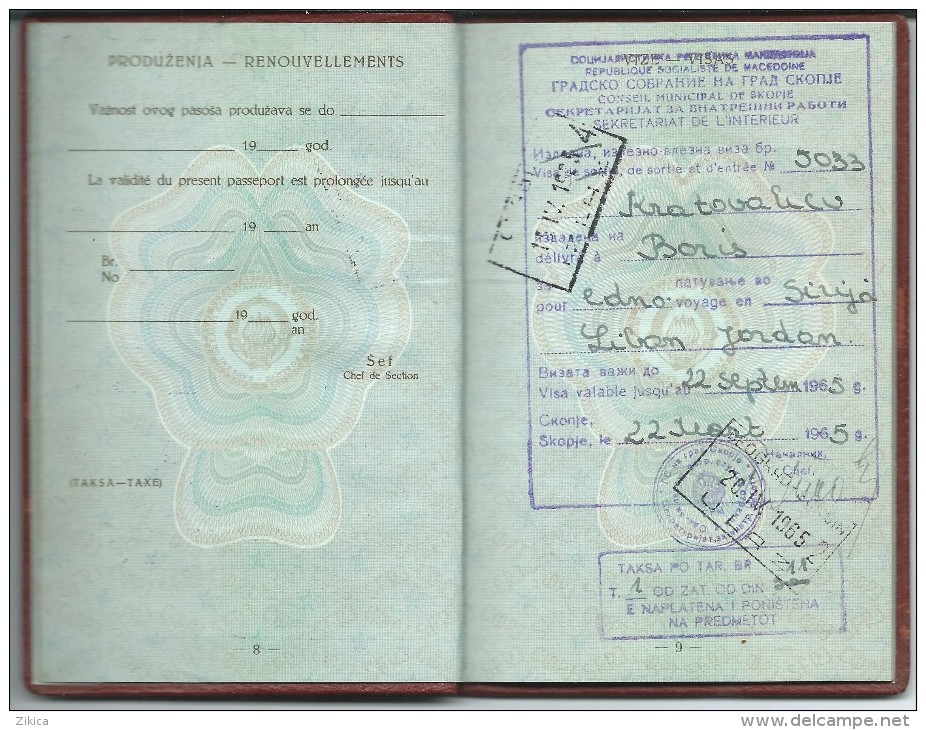 PRODUŽENJA — RENOUVELLEMENTS
Važnost ovog pasoša produžava se do
19 god.
La validité du present passeport est prolongée jusqu'au
19 an
Br.
No
19 god.
an
Šef
Chef de Section
(TAKSA—TAXE)
— 8 —
VIZE — VISAS
РЕПУБЛИКА МАКЕДОНИЈА
REPUBLIQUE SOCIALISTE DE MACEDOINE
ГРАДСКО СОБРАНИЕ НА ГРАД СКОПЈЕ
CONSEIL MUNICIPAL DE SKOPIE
СЕКРЕТАРИЈАТ ЗА ВНАТРЕШНИ РАБОТИ
SEKRETARIAT DE L'INTERIEUR
Издадена, излезно-влезна виза бр.
Visa de sortie, de sortie et d'entrée № 5033
издадена на
délivré à Boris
за патување во
pour edno voyage en Sirija
Liban Jordan
Визата важи до
Visa valable jusqu'au 22 septem 1965 g.
Скопје,
Skopje, le 22 Mart 1965 g.
Началник,
Chef,
28.IV.1965
TAKSA PO TAR. BR
T. 1 OD ZAT. OD DIN
E NAPLATENA I PONIŠTENA
NA PREDMETOT
— 9 —
Zikica
delcampe.net